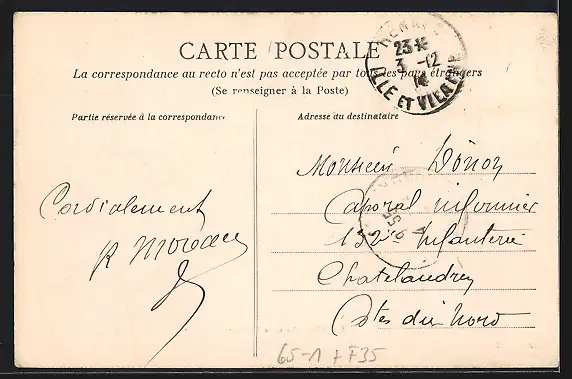 CARTE POSTALE
La correspondance au recto n'est pas acceptée par tous les pays étrangers
(Se renseigner à la Poste)
Partie réservée à la correspondance
Adresse du destinataire
RENNES
23 *
3 -12
14
ILLE ET VILAINE
Cordialement
R Moreau
Monsieur
Caporal infirmier
152e Infanterie
Chatelaudren
Côtes du Nord
65-1 + F35